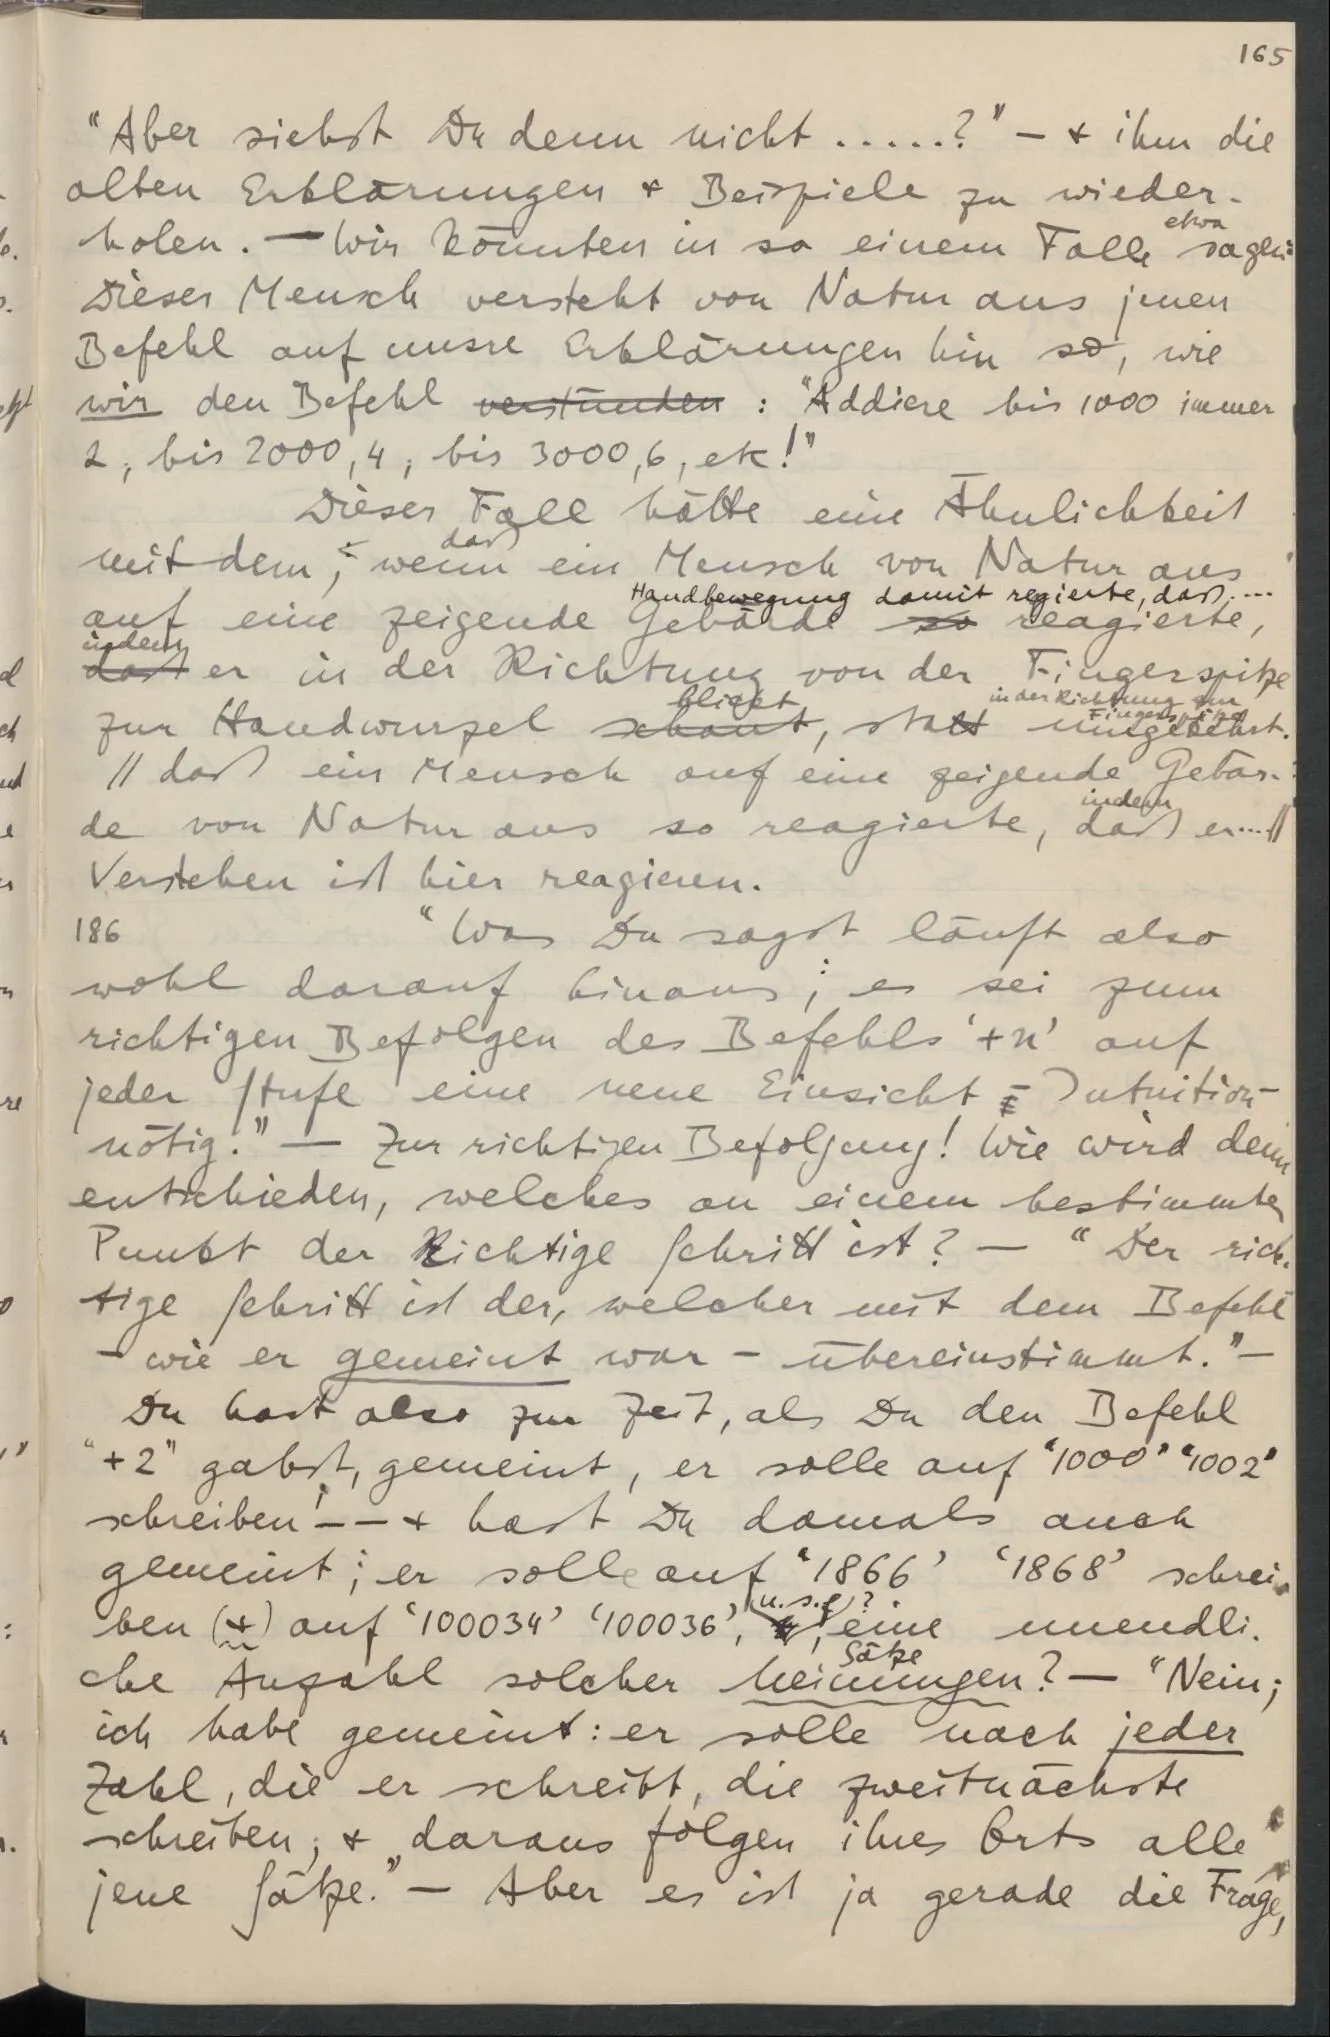 165
"Aber siehst Du denn nicht .....?" — + ihm die
alten Erklärungen + Beispiele zu wieder-
holen. — Wir könnten in so einem Falle etwa sagen:
Dieser Mensch versteht von Natur aus jenen
Befehl auf unsre Erklärungen hin so, wie
wir den Befehl verstünden : "Addiere bis 1000 immer
2, bis 2000, 4, bis 3000, 6, etc!"
Dieser Fall hätte eine Ähnlichkeit
daß
mit dem, wenn ein Mensch von Natur aus
Handbewegung damit regierte, daß ....
auf eine zeigende Gebärde so reagierte,
indem
daß er in der Richtung von der Fingerspitze
blickt in der Richtung zur Fingerspitze
zur Handwurzel schaut, statt umgekehrt.
// daß ein Mensch auf eine zeigende Gebär-
indem
de von Natur aus so reagierte, daß er....//
Verstehen ist hier reagieren.
186 "Was Du sagst läuft also
wohl darauf hinaus; es sei zum
richtigen Befolgen des Befehls '+n' auf
jeder Stufe eine neue Einsicht – Intuition –
nötig." — Zur richtigen Befolgung! Wie wird denn
entschieden, welches an einem bestimmten
Punkt der Richtige Schritt ist? — "Der rich-
tige Schritt ist der, welcher mit dem Befehl
– wie er gemeint war – übereinstimmt." —
Du hast also zur Zeit, als Du den Befehl
"+2" gabst, gemeint, er solle auf '1000' '1002'
schreiben! — — + hast Du damals auch
gemeint; er solle auf '1866' '1868' schrei-
u.s.f.?
ben (+) auf '100034' '100036', eine unendli-
Sätze
che Anzahl solcher Meinungen? — "Nein;
ich habe gemeint: er solle nach jeder
Zahl, die er schreibt, die zweitnächste
schreiben; + daraus folgen ihres Orts alle
jene Sätze." — Aber es ist ja gerade die Frage,